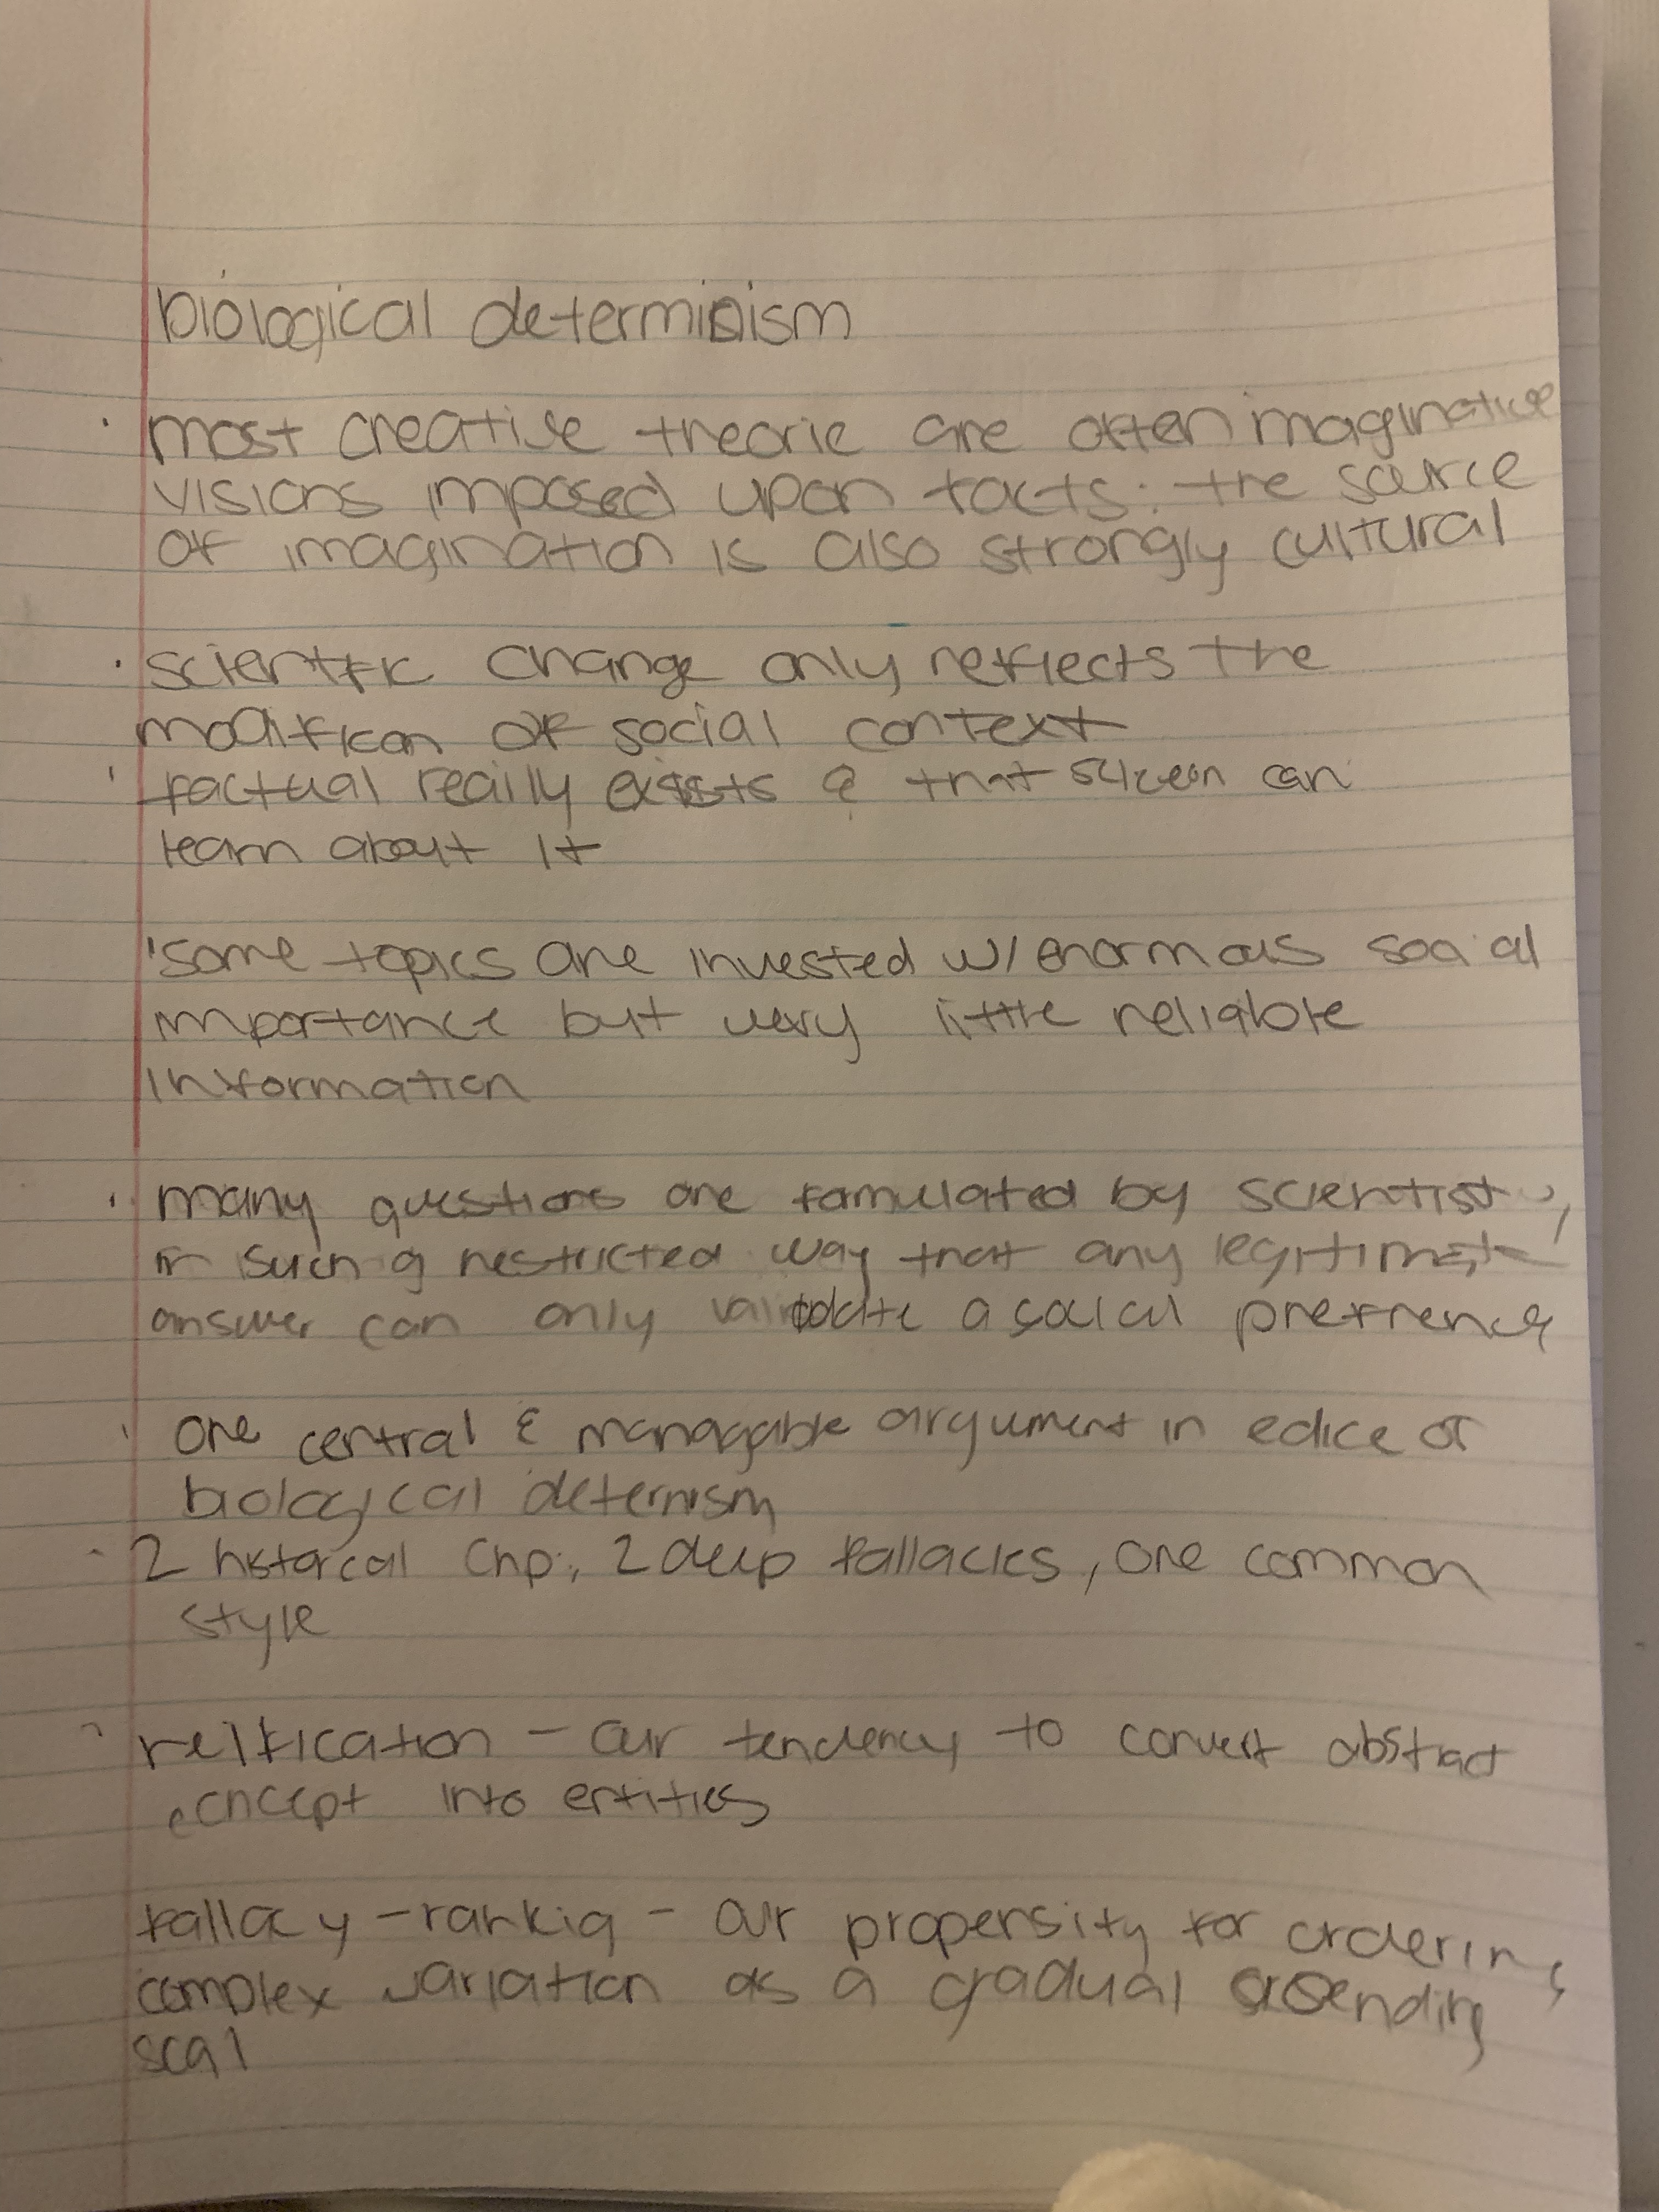 biological determinism
· most creative theorie are often imaginative
visions imposed upon facts: the source
of imagination is also strongly cultural
· scientific change only reflects the
modificon of social context
· factual really exists & that can
learn about it
· some topics are invested w/ enormous social
importance but very little reliable
information
· many questions are famulated by scientist,
in such a restricted way that any legitimate
answer can only validate a social prefrence
· one central & managable argument in edice of
biological deternism
- 2 historcal chp:, 2 deep fallacies, one common
style
· reification - our tendency to convert abstract
concept into entities
fallacy - rankig - our propensity for ordering
complex variation as a gradual ascending
scal